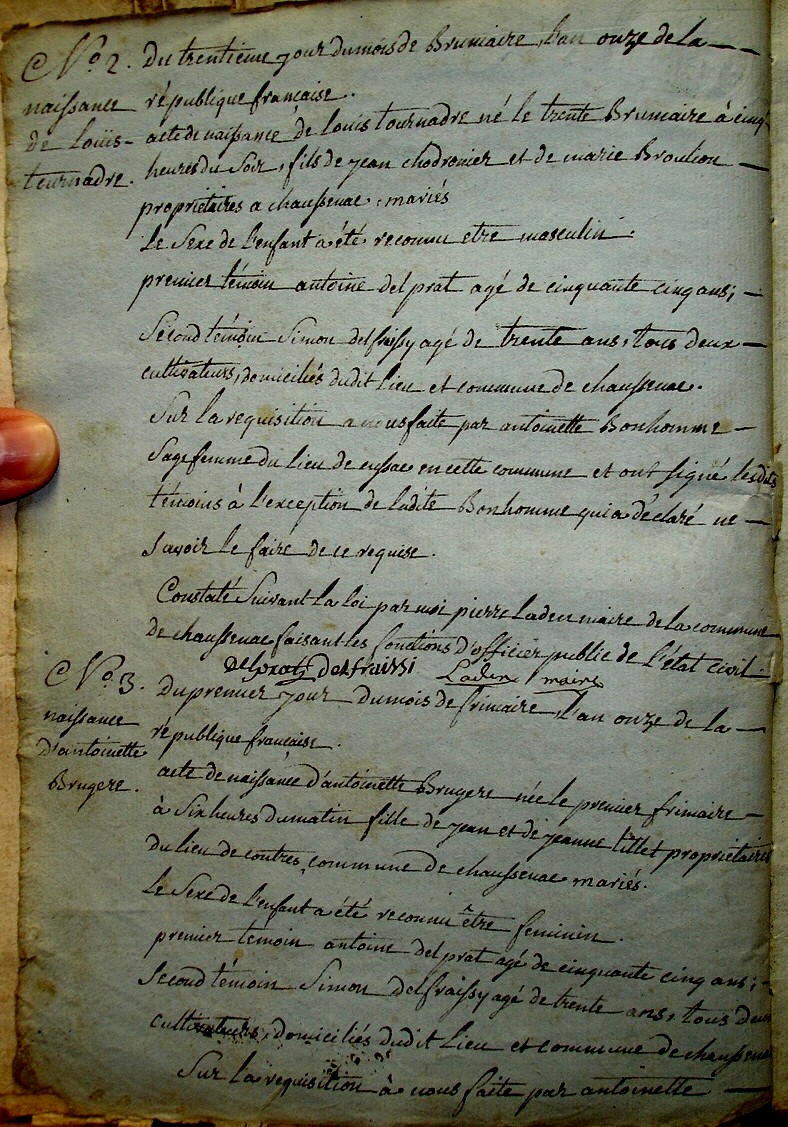 N.º 2. Du trentieme jour du mois de Brumaire, l'an onze de la
naissance république francaise.
de Loüis acte de naissance de Louis tournadre né le trente Brumaire à cinq
tournadre. heures du Soir, fils de jean chodronier et de marie Broulion
propriétaires a chaussenac, mariés
Le Sexe de l'enfant a été reconnu etre masculin.
premier témoin antoine delprat agé de cinquante cinq ans;
Second témoin Simon delfraissy agé de trente ans, tous deux
cultivateurs, domiciliés dudit Lieu et commune de chaussenac.
Sur la requisition a nous faite par antoinette Bonhomme
Sage femme du Lieu de en cette commune et ont signé lesdits
témoins à l'exception de ladite Bonhomme qui a déclaré ne
Savoir le faire de ce requise.
Constaté Suivant la loi par moi pierre Laden maire de la commune
de chaussenac faisant les fonctions d'officier public de l'état civil
Delprat Delfraissi Laden maire
N.º 3. Du premier jour du mois de frimaire, l'an onze de la
naissance république francaise.
d'antoinette acte de naissance d'antoinette Brugere née le premier frimaire
Brugere. à Six heures du matin fille de jean et de jeanne tillet propriétaires
du lieu de contres, commune de chaussenac mariés.
Le Sexe de l'enfant a été reconnu être feminin.
premier temoin antoine delprat agé de cinquante cinq ans;
Second témoin Simon delfraissy agé de trente ans, tous deux
cultivateurs, domiciliés dudit Lieu et commune de chaussenac
Sur la requisition à nous faite par antoinette